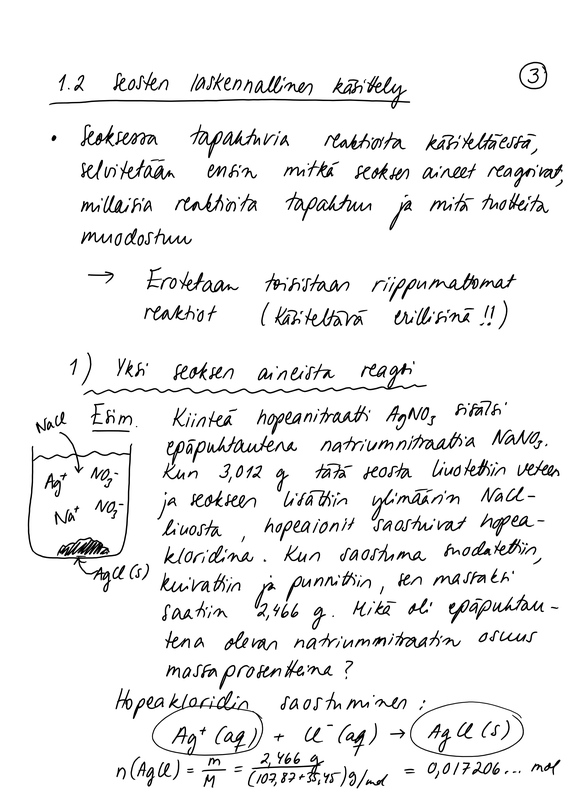 3
1.2 Seosten laskennallinen käsittely
• Seoksessa tapahtuvia reaktioita käsiteltäessä,
selvitetään ensin mitkä seoksen aineet reagoivat,
millaisia reaktioita tapahtuu ja mitä tuotteita
muodostuu
→ Erotetaan toisistaan riippumattomat
reaktiot (käsiteltävä erillisinä !!)
1) Yksi seoksen aineista reagoi
Esim. Kiinteä hopeanitraatti AgNO₃ sisälsi
epäpuhtautena natriumnitraattia NaNO₃.
Kun 3,012 g tätä seosta liuotettiin veteen
ja seokseen lisättiin ylimäärin NaCl-
liuosta, hopeaionit saostuivat hopea-
kloridina. Kun saostuma suodatettiin,
kuivattiin ja punnittiin, sen massaksi
saatiin 2,466 g. Mikä oli epäpuhtau-
tena olevan natriumnitraatin osuus
massaprosentteina?
NaCl
Ag⁺ NO₃⁻
Na⁺ NO₃⁻
AgCl (s)
Hopeakloridin saostuminen:
Ag⁺ (aq) + Cl⁻ (aq) → AgCl (s)
n(AgCl) = m/M = 2,466 g/(107,87+35,45) g/mol = 0,017206... mol